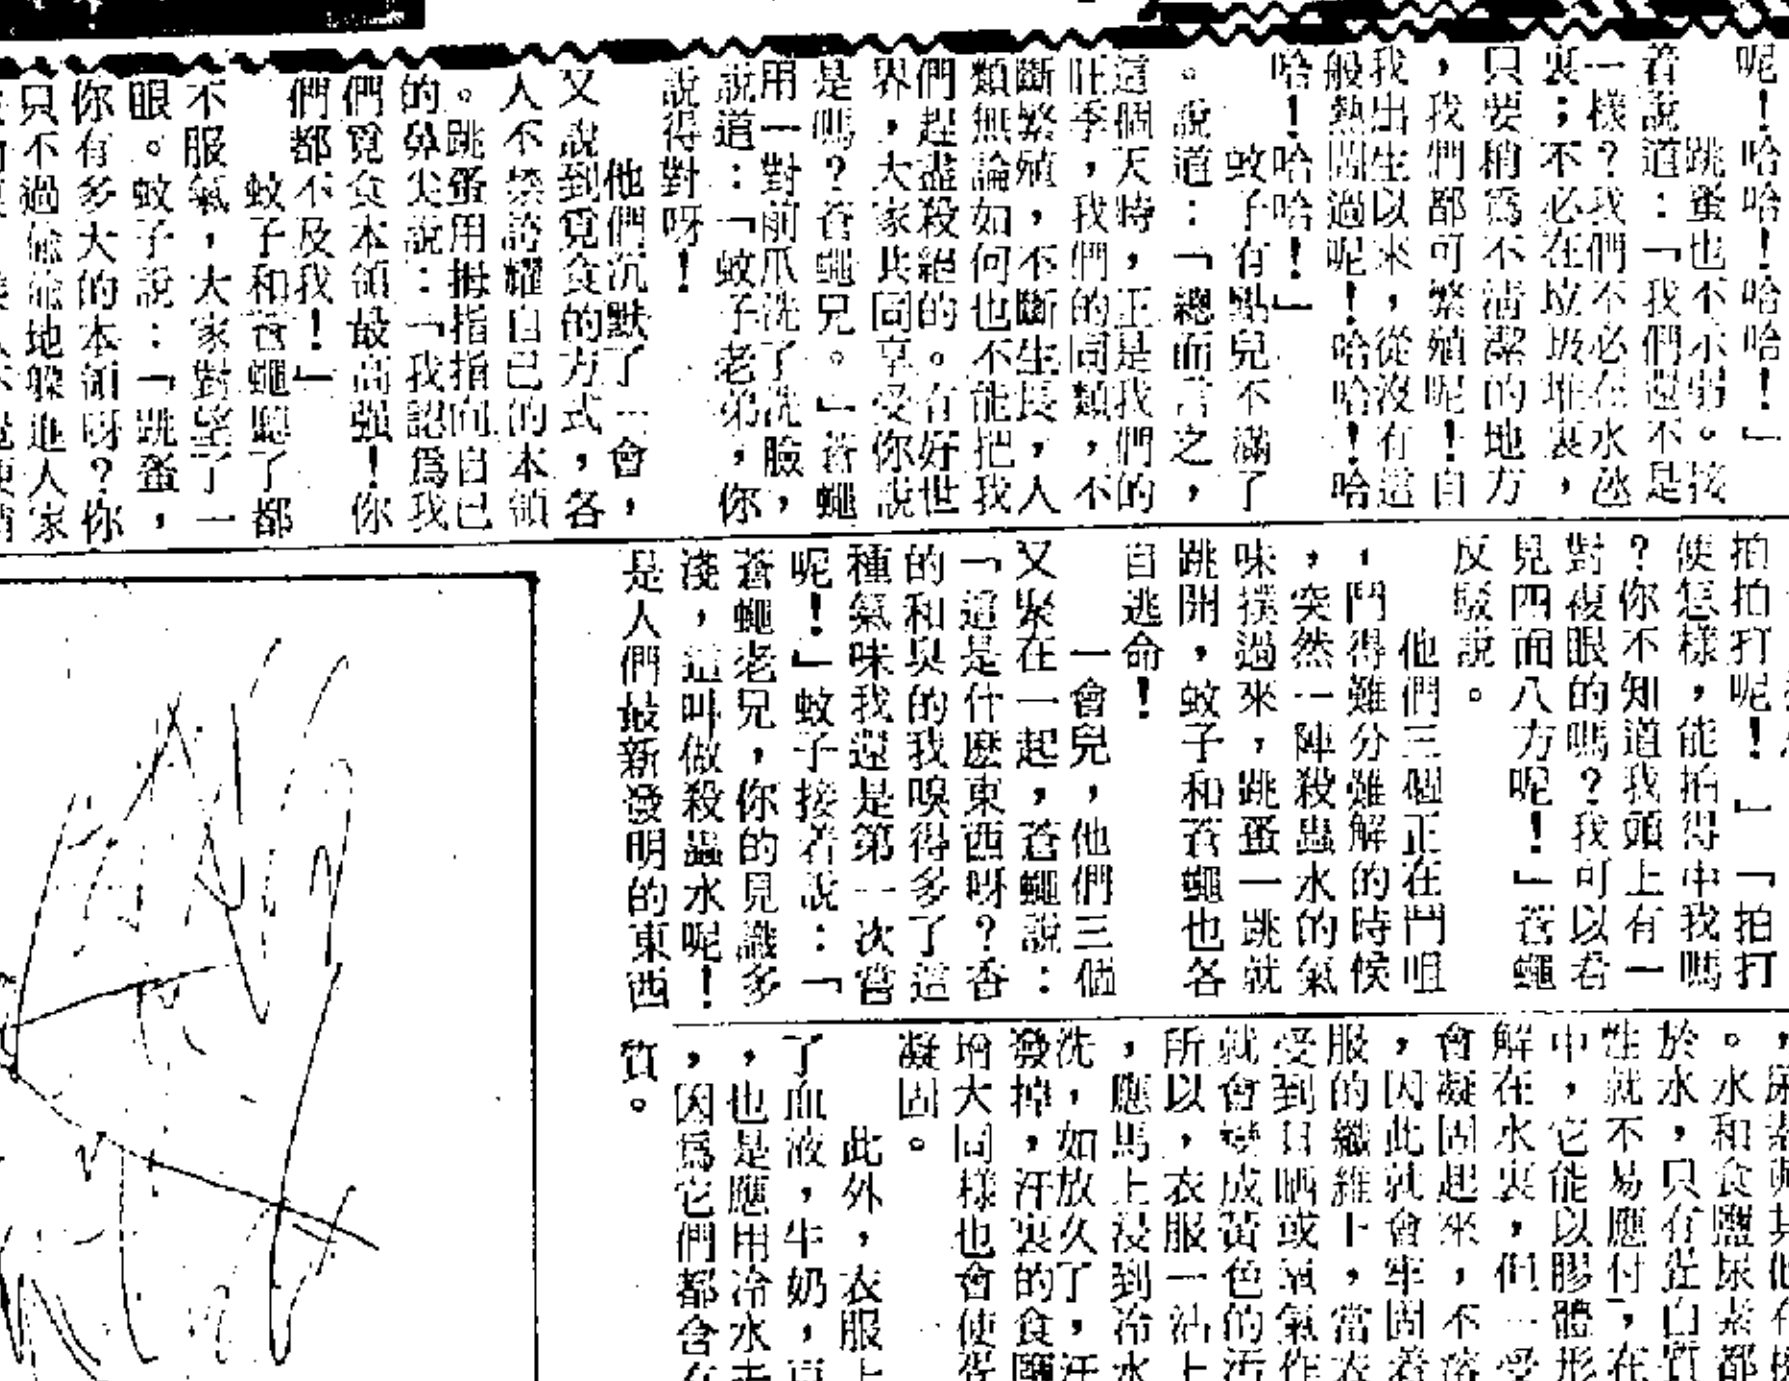 呢！哈哈！哈哈！」
跳蚤也不示弱。接
着說道：「我們還不是
一樣？我們不必在水氹
裏；不必在垃圾堆裏，
只要稍爲不清潔的地方
，我們都可繁殖呢！自
我出生以來，從沒有這
般熱鬧過呢！哈哈！哈
哈！哈哈！」
蚊子有點兒不滿了
。說道：「總而言之，
這個天時，正是我們的
旺季，我們的同類，不
斷繁殖，不斷生長，人
類無論如何也不能把我
們趕盡殺絕的。有好世
界，大家共同享受你說
是嗎？蒼蠅兄。」蒼蠅
用一對前爪洗了洗臉，
說道：「蚊子老弟，你
說得對呀！
他們沉默了一會，
又說到覓食的方式，各
人不禁誇耀自己的本領
。跳蚤用拇指指向自己
的鼻尖說：「我認爲我
們覓食本領最高强！你
們都不及我！」
蚊子和蒼蠅聽了都
不服氣，大家對望了一
眼。蚊子說：「跳蚤，
你有多大的本領呀？你
只不過偸偸地躱進人家
拍拍打呢！」「拍打
便怎樣，能拍得中我嗎
？你不知道我頭上有一
對複眼的嗎？我可以看
見四面八方呢！」蒼蠅
反駁說。
他們三個正在鬥咀
，鬥得難分難解的時候
，突然一陣殺蟲水的氣
味撲過來，跳蚤一跳就
跳開，蚊子和蒼蠅也各
自逃命！
一會兒，他們三個
又聚在一起，蒼蠅說：
「這是什麽東西呀？香
的和臭的我嗅得多了這
種氣味我還是第一次嘗
呢！」蚊子接着說：「
蒼蠅老兄，你的見識多
淺，這叫做殺蟲水呢！
是人們最新發明的東西
。水和食鹽尿素都
於水，只有蛋白質
性就不易應付，在
中，它能以膠體形
解在水裏，但一受
會凝固起來，不溶
，因此就會牢固着
服的纖維上，當衣
受到日晒或蒸氣作
就會變成黃色的汚
所以，衣服一沾上
，應馬上浸到冷水
洗，如放久了，汗
發掉，汗裏的食鹽
增大同樣也會使蛋
凝固。
此外，衣服上
了血液，牛奶，豆
，也是應用冷水去
，因爲它們都含有
質。